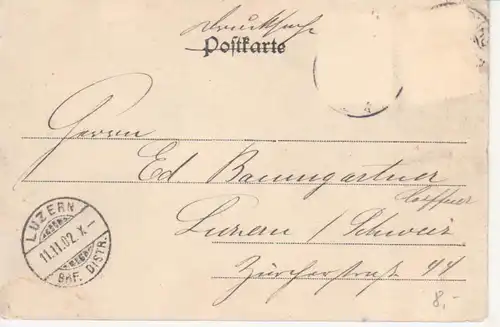 Drucksache
Postkarte
Herrn
Ed Baumgartner
Coiffeur
Luzern / Schweiz
Zürcherstraße 44
LUZERN
11.11.02.X-
BRF. DISTR.
8,-